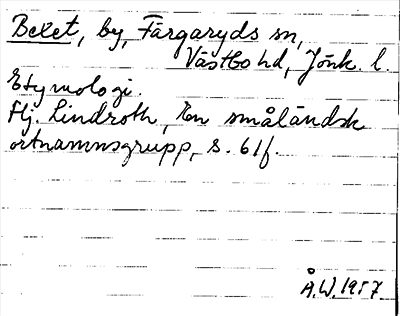 Betet, by, Färgaryds sn,
Västbo hd, Jönk. l.
Etymologi.
Hj. Lindroth, En småländsk
ortnamnsgrupp, s. 61f.
Å.W. 1957